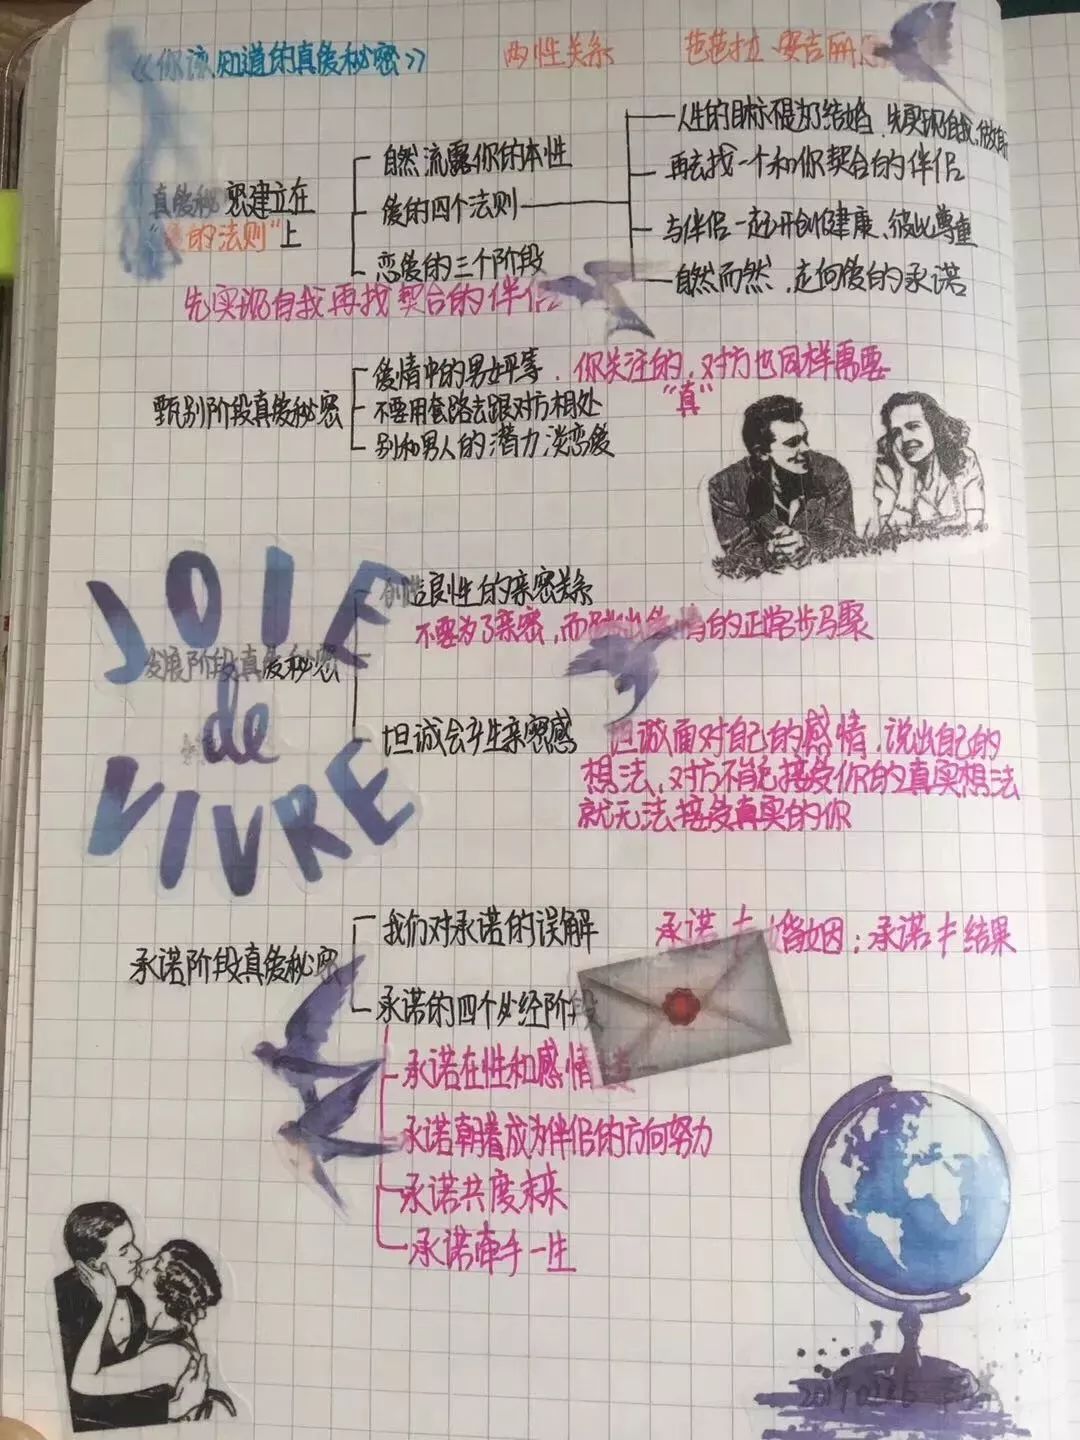 《你该知道的真爱秘密》 两性关系 芭芭拉·安吉丽思
真爱秘密建立在
"爱的法则"上
自然流露你的本性
爱的四个法则
恋爱的三个阶段
人生的目标不是为了结婚，先实现自我，做好自己
再去找一个和你契合的伴侣
与伴侣一起开创健康、彼此尊重
自然而然，走向爱的承诺
先实现自我再找契合的伴侣
甄别阶段真爱秘密
爱情中的男女平等，你关注的，对方也同样需要
不要用套路去跟对方相处 "真"
别和男人的潜力谈恋爱
JOIE
de
VIVRE
发展阶段真爱秘密
创造良性的亲密关系
不要为了亲密，而 的正常步骤
坦诚会产生亲密感
坦诚面对自己的感情，说出自己的
想法，对方不能接受你的真实想法
就无法接受真实的你
承诺阶段真爱秘密
我们对承诺的误解 承诺≠婚姻；承诺≠结果
承诺的四个必经阶段
承诺在性和感情
承诺朝着成为伴侣的方向努力
承诺共度未来
承诺牵手一生